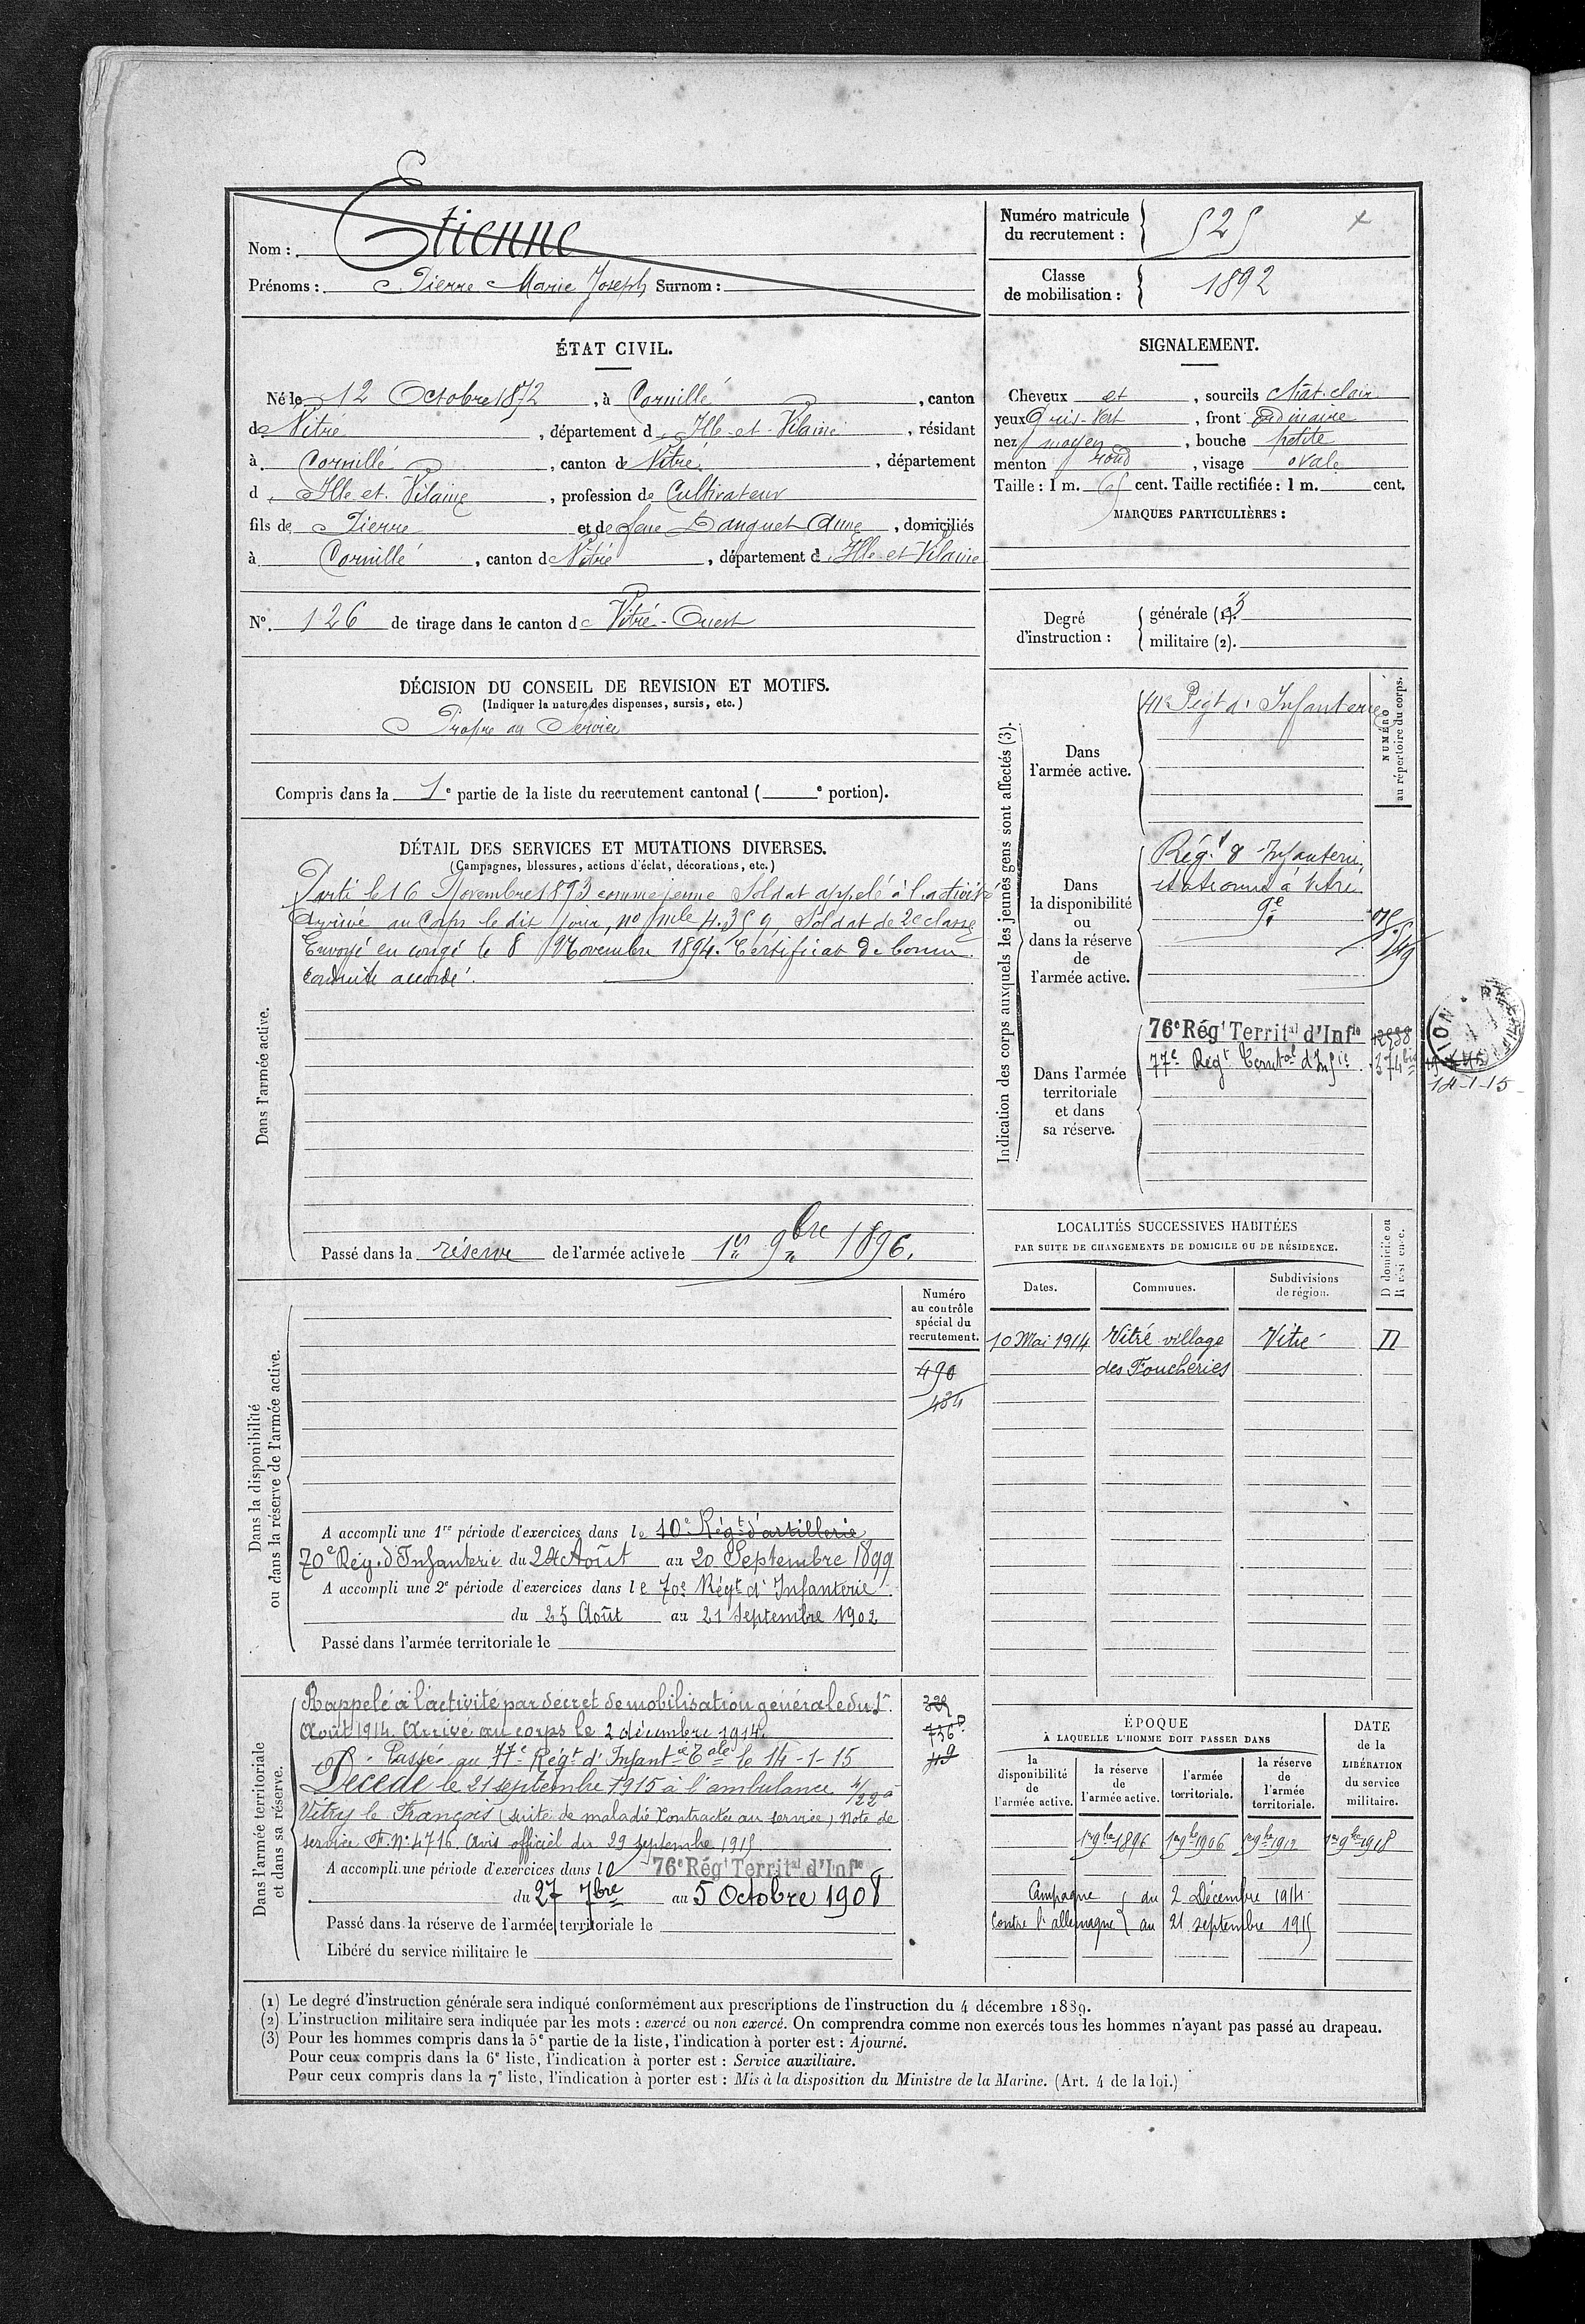 Nom : Etienne
Prénoms : Pierre Marie Joseph Surnom :
Numéro matricule du recrutement : 525
Classe de mobilisation : 1892
ÉTAT CIVIL.
Né le 12 Octobre 1872, à Cornillé, canton
de Vitré, département d'Ille-et-Vilaine, résidant
à Cornillé, canton de Vitré, département
d'Ille et Vilaine, profession de Cultivateur
fils de Pierre et de feue Danguet Anne, domiciliés
à Cornillé, canton de Vitré, département d'Ille et Vilaine
N° 126 de tirage dans le canton de Vitré-Ouest
DÉCISION DU CONSEIL DE REVISION ET MOTIFS.
(Indiquer la nature des dispenses, sursis, etc.)
Propre au Service
Compris dans la 1e partie de la liste du recrutement cantonal (e portion).
DÉTAIL DES SERVICES ET MUTATIONS DIVERSES.
(Campagnes, blessures, actions d'éclat, décorations, etc.)
Dans l'armée active.
Parti le 16 Novembre 1893 comme jeune Soldat appelé à l'activité
Arrivé au Corps le dit jour, no mle 4.359 Soldat de 2e classe
Envoyé en congé le 8 Novembre 1894. Certificat de bonne
conduite accordé.
Passé dans la réserve de l'armée active le 1er 9bre 1896.
Dans la disponibilité
ou dans la réserve de l'armée active.
Numéro
au contrôle
spécial du
recrutement.
490
484
A accompli une 1re période d'exercices dans le 10e Régt d'artillerie
70e Rég. d'Infanterie du 24 Août au 20 Septembre 1899
A accompli une 2e période d'exercices dans le 70e Régt d'Infanterie
du 25 Août au 21 Septembre 1902
Passé dans l'armée territoriale le
Dans l'armée territoriale
et dans sa réserve.
Rappelé à l'activité par décret de mobilisation générale du 1er
Août 1914. Arrivé au corps le 2 décembre 1914.
Passé au 77e Régt d'Infantie Tale le 14-1-15
Décédé le 21 septembre 1915 à l'ambulance 4/22 à
Vitry le François (suite de maladie contractée au service) Note de
service F. N° 4716. Avis officiel du 29 septembre 1915
A accompli une période d'exercices dans le 76e Régt Territal d'Infie
du 27 7bre au 5 Octobre 1908
Passé dans la réserve de l'armée territoriale le
Libéré du service militaire le
SIGNALEMENT.
Cheveux et, sourcils chât. clair
yeux Gris-Vert, front Ordinaire
nez moyen, bouche petite
menton rond, visage ovale
Taille : 1 m. 65 cent. Taille rectifiée : 1 m. cent.
MARQUES PARTICULIÈRES :
Degré d'instruction : générale (1). 3
militaire (2).
Indication des corps auxquels les jeunes gens sont affectés (3).
NUMÉRO
au répertoire du corps.
Dans
l'armée active.
41e Régt d'Infanterie
Dans
la disponibilité
ou
dans la réserve
de
l'armée active.
Régt d'Infanterie
stationné à Vitré
Dans l'armée
territoriale
et dans
sa réserve.
76e Régt Territal d'Infie
77e Régt Territal d'Infie
14-1-15
LOCALITÉS SUCCESSIVES HABITÉES
PAR SUITE DE CHANGEMENTS DE DOMICILE OU DE RÉSIDENCE.
Dates. Communes. Subdivisions de région. D domicile ou R résidence.
10 Mai 1914 Vitré village Vitré D
des Foucheries
ÉPOQUE
À LAQUELLE L'HOMME DOIT PASSER DANS
la disponibilité de l'armée active.
la réserve de l'armée active.
l'armée territoriale.
la réserve de l'armée territoriale.
DATE de la LIBÉRATION du service militaire.
1er 9bre 1896 1er 9bre 1906 1er 9bre 1912 1er 9bre 1918
Campagne du 2 Décembre 1914
contre l'allemagne au 21 septembre 1915
(1) Le degré d'instruction générale sera indiqué conformément aux prescriptions de l'instruction du 4 décembre 1889.
(2) L'instruction militaire sera indiquée par les mots : exercé ou non exercé. On comprendra comme non exercés tous les hommes n'ayant pas passé au drapeau.
(3) Pour les hommes compris dans la 5e partie de la liste, l'indication à porter est : Ajourné.
Pour ceux compris dans la 6e liste, l'indication à porter est : Service auxiliaire.
Pour ceux compris dans la 7e liste, l'indication à porter est : Mis à la disposition du Ministre de la Marine. (Art. 4 de la loi.)